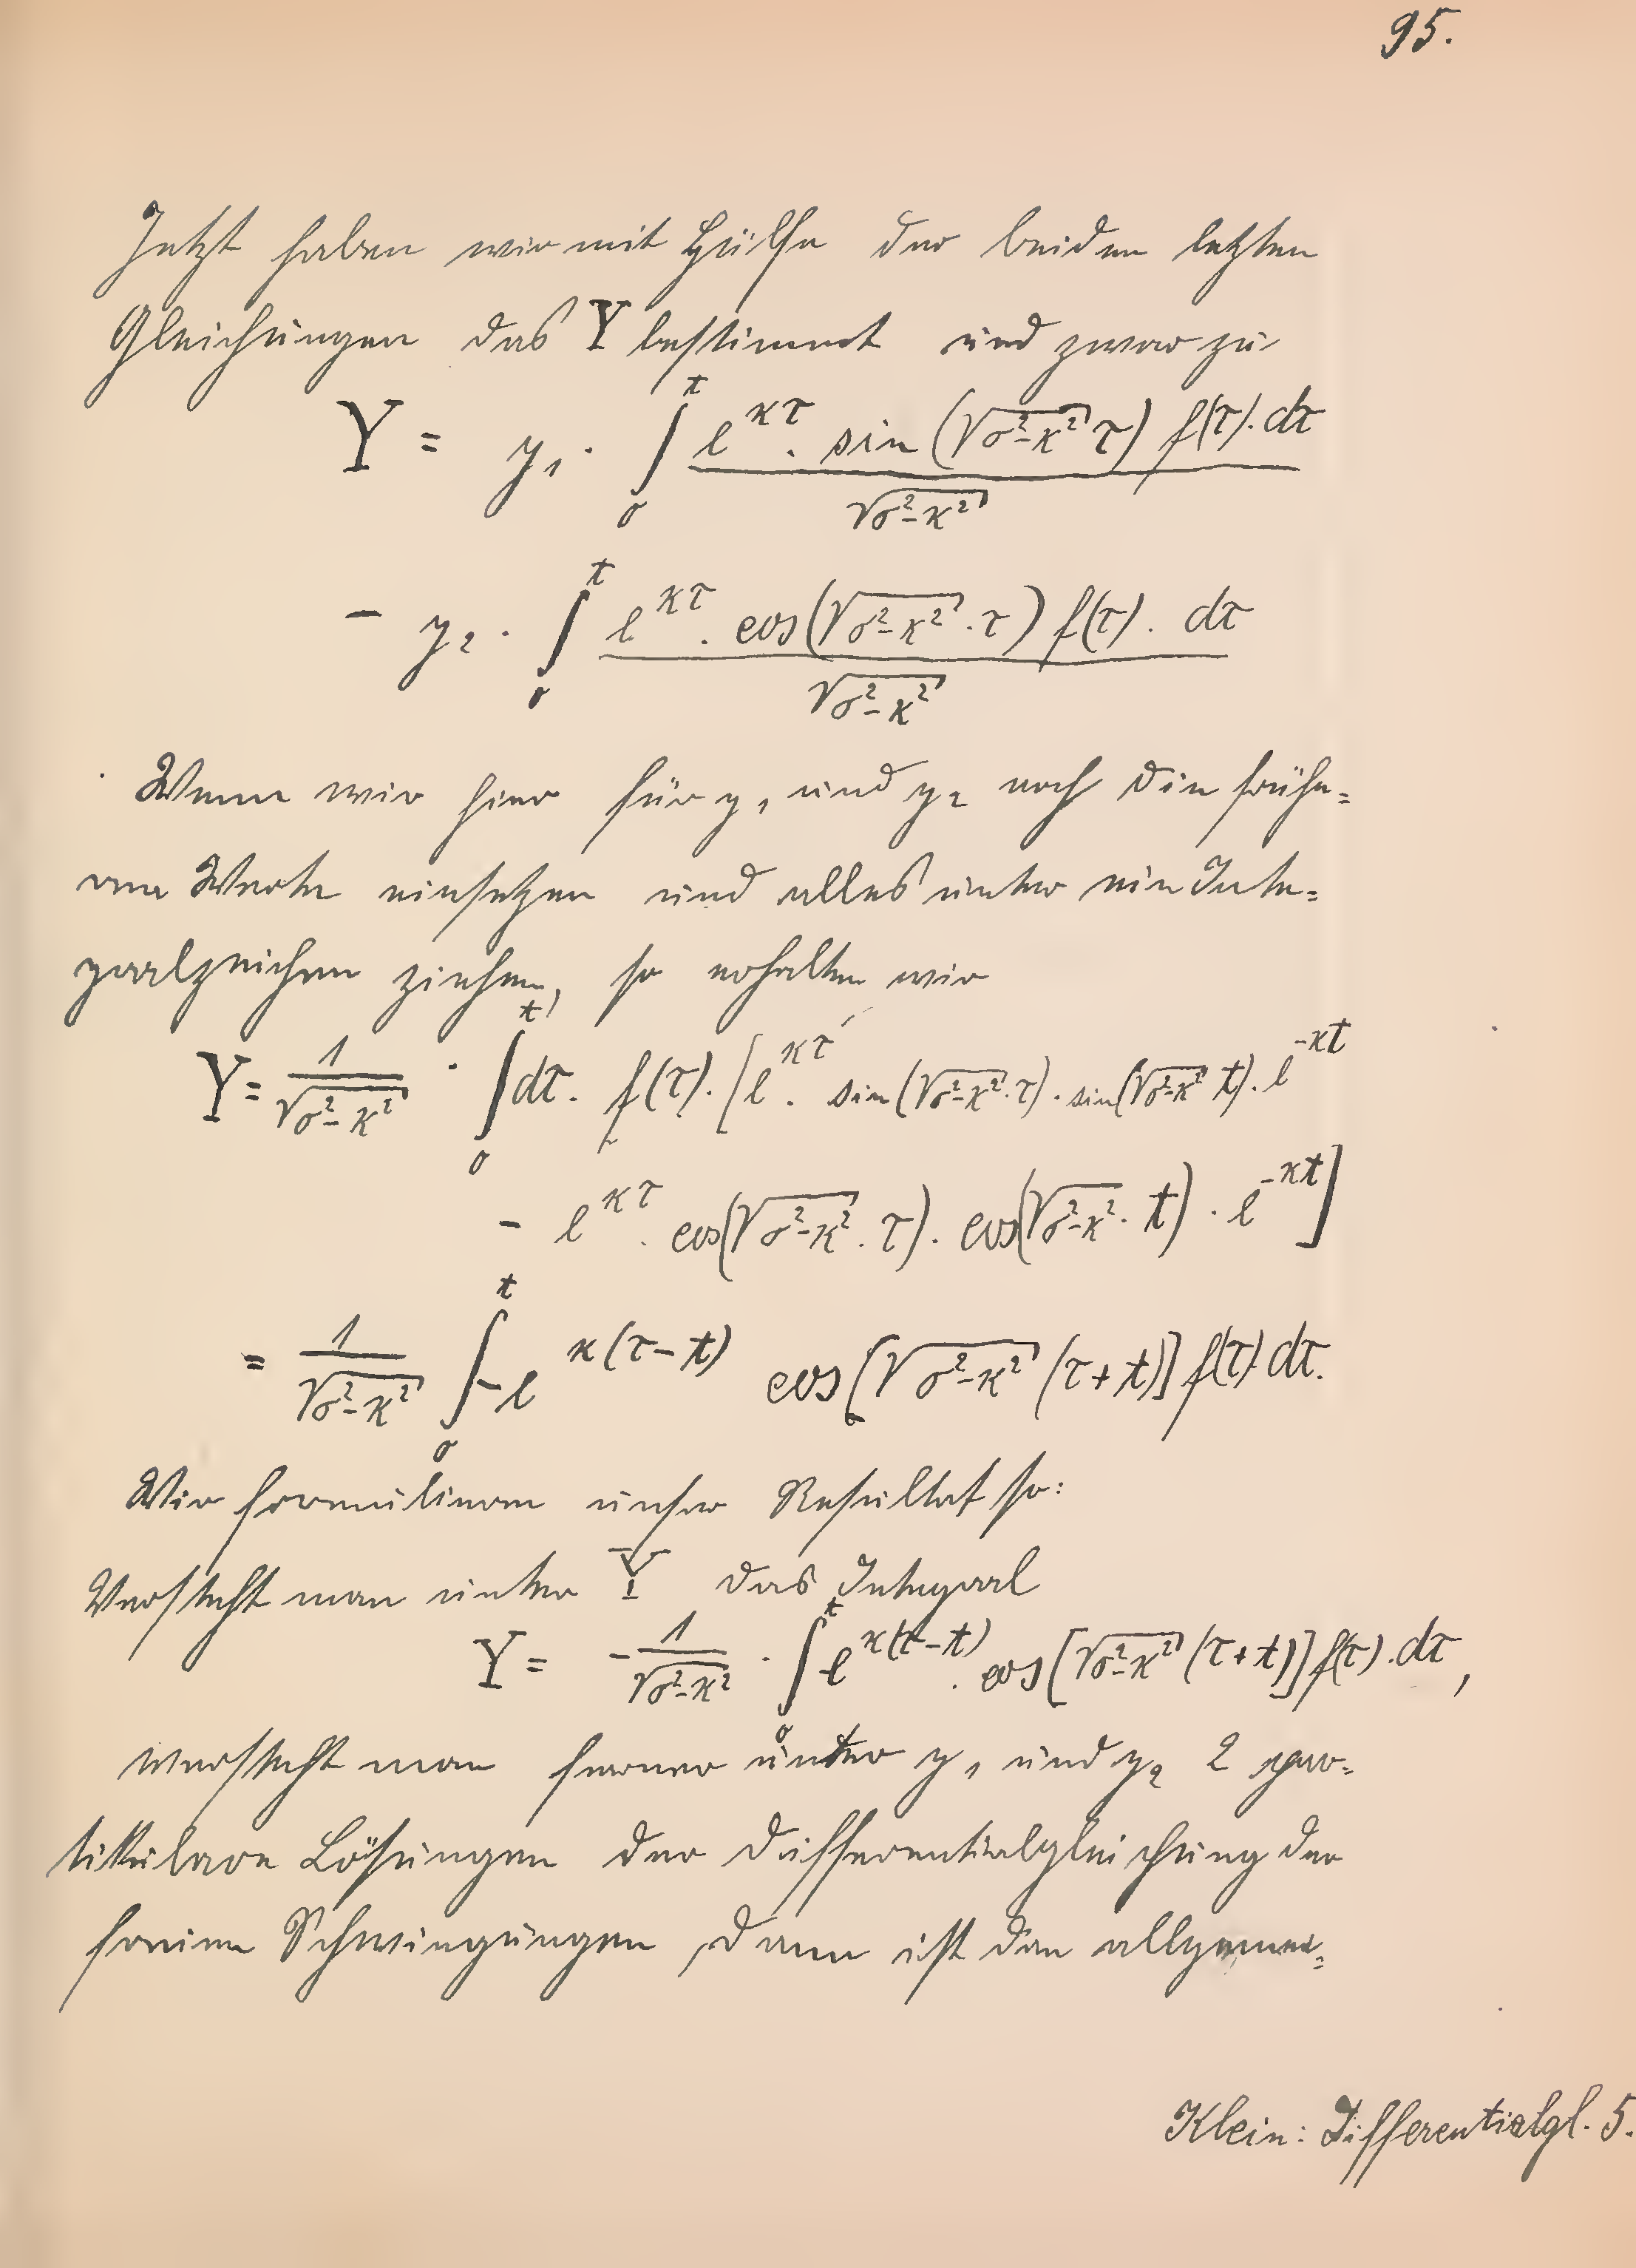 95.
Jetzt haben wir mit Hülfe der beiden letzten
Gleichungen das Y bestimmt und zwar zu
Y = y₁ · ∫₀ᵗ e^{κτ} · sin (√(σ²-κ²) τ) f(τ) · dτ / √(σ²-κ²)
- y₂ · ∫₀ᵗ e^{κτ} · cos (√(σ²-κ²) · τ) f(τ) · dτ / √(σ²-κ²)
Wenn wir hier für y₁ und y₂ noch die frühe=
ren Werte einsetzen und alles unter ein Inte=
gralzeichen ziehen, so erhalten wir
Y = 1/√(σ²-κ²) · ∫₀ᵗ dτ · f(τ) · [e^{κτ} · sin (√(σ²-κ²) · τ) · sin (√(σ²-κ²) t) · e^{-κt}
- e^{κτ} · cos (√(σ²-κ²) · τ) · cos (√(σ²-κ²) · t) · e^{-κt}]
= 1/√(σ²-κ²) ∫₀ᵗ - e^{κ(τ-t)} cos [√(σ²-κ²) (τ+t)] f(τ) dτ.
Wir formulieren unser Resultat so:
Versteht man unter Y das Integral
Y = - 1/√(σ²-κ²) · ∫₀ᵗ e^{κ(τ-t)} · cos [√(σ²-κ²) (τ+t)] f(τ) · dτ,
versteht man ferner unter y₁ und y₂ 2 par=
tikulare Lösungen der Differentialgleichung der
freien Schwingungen, dann ist den allgemei=
Klein: Differentialgl. 5.